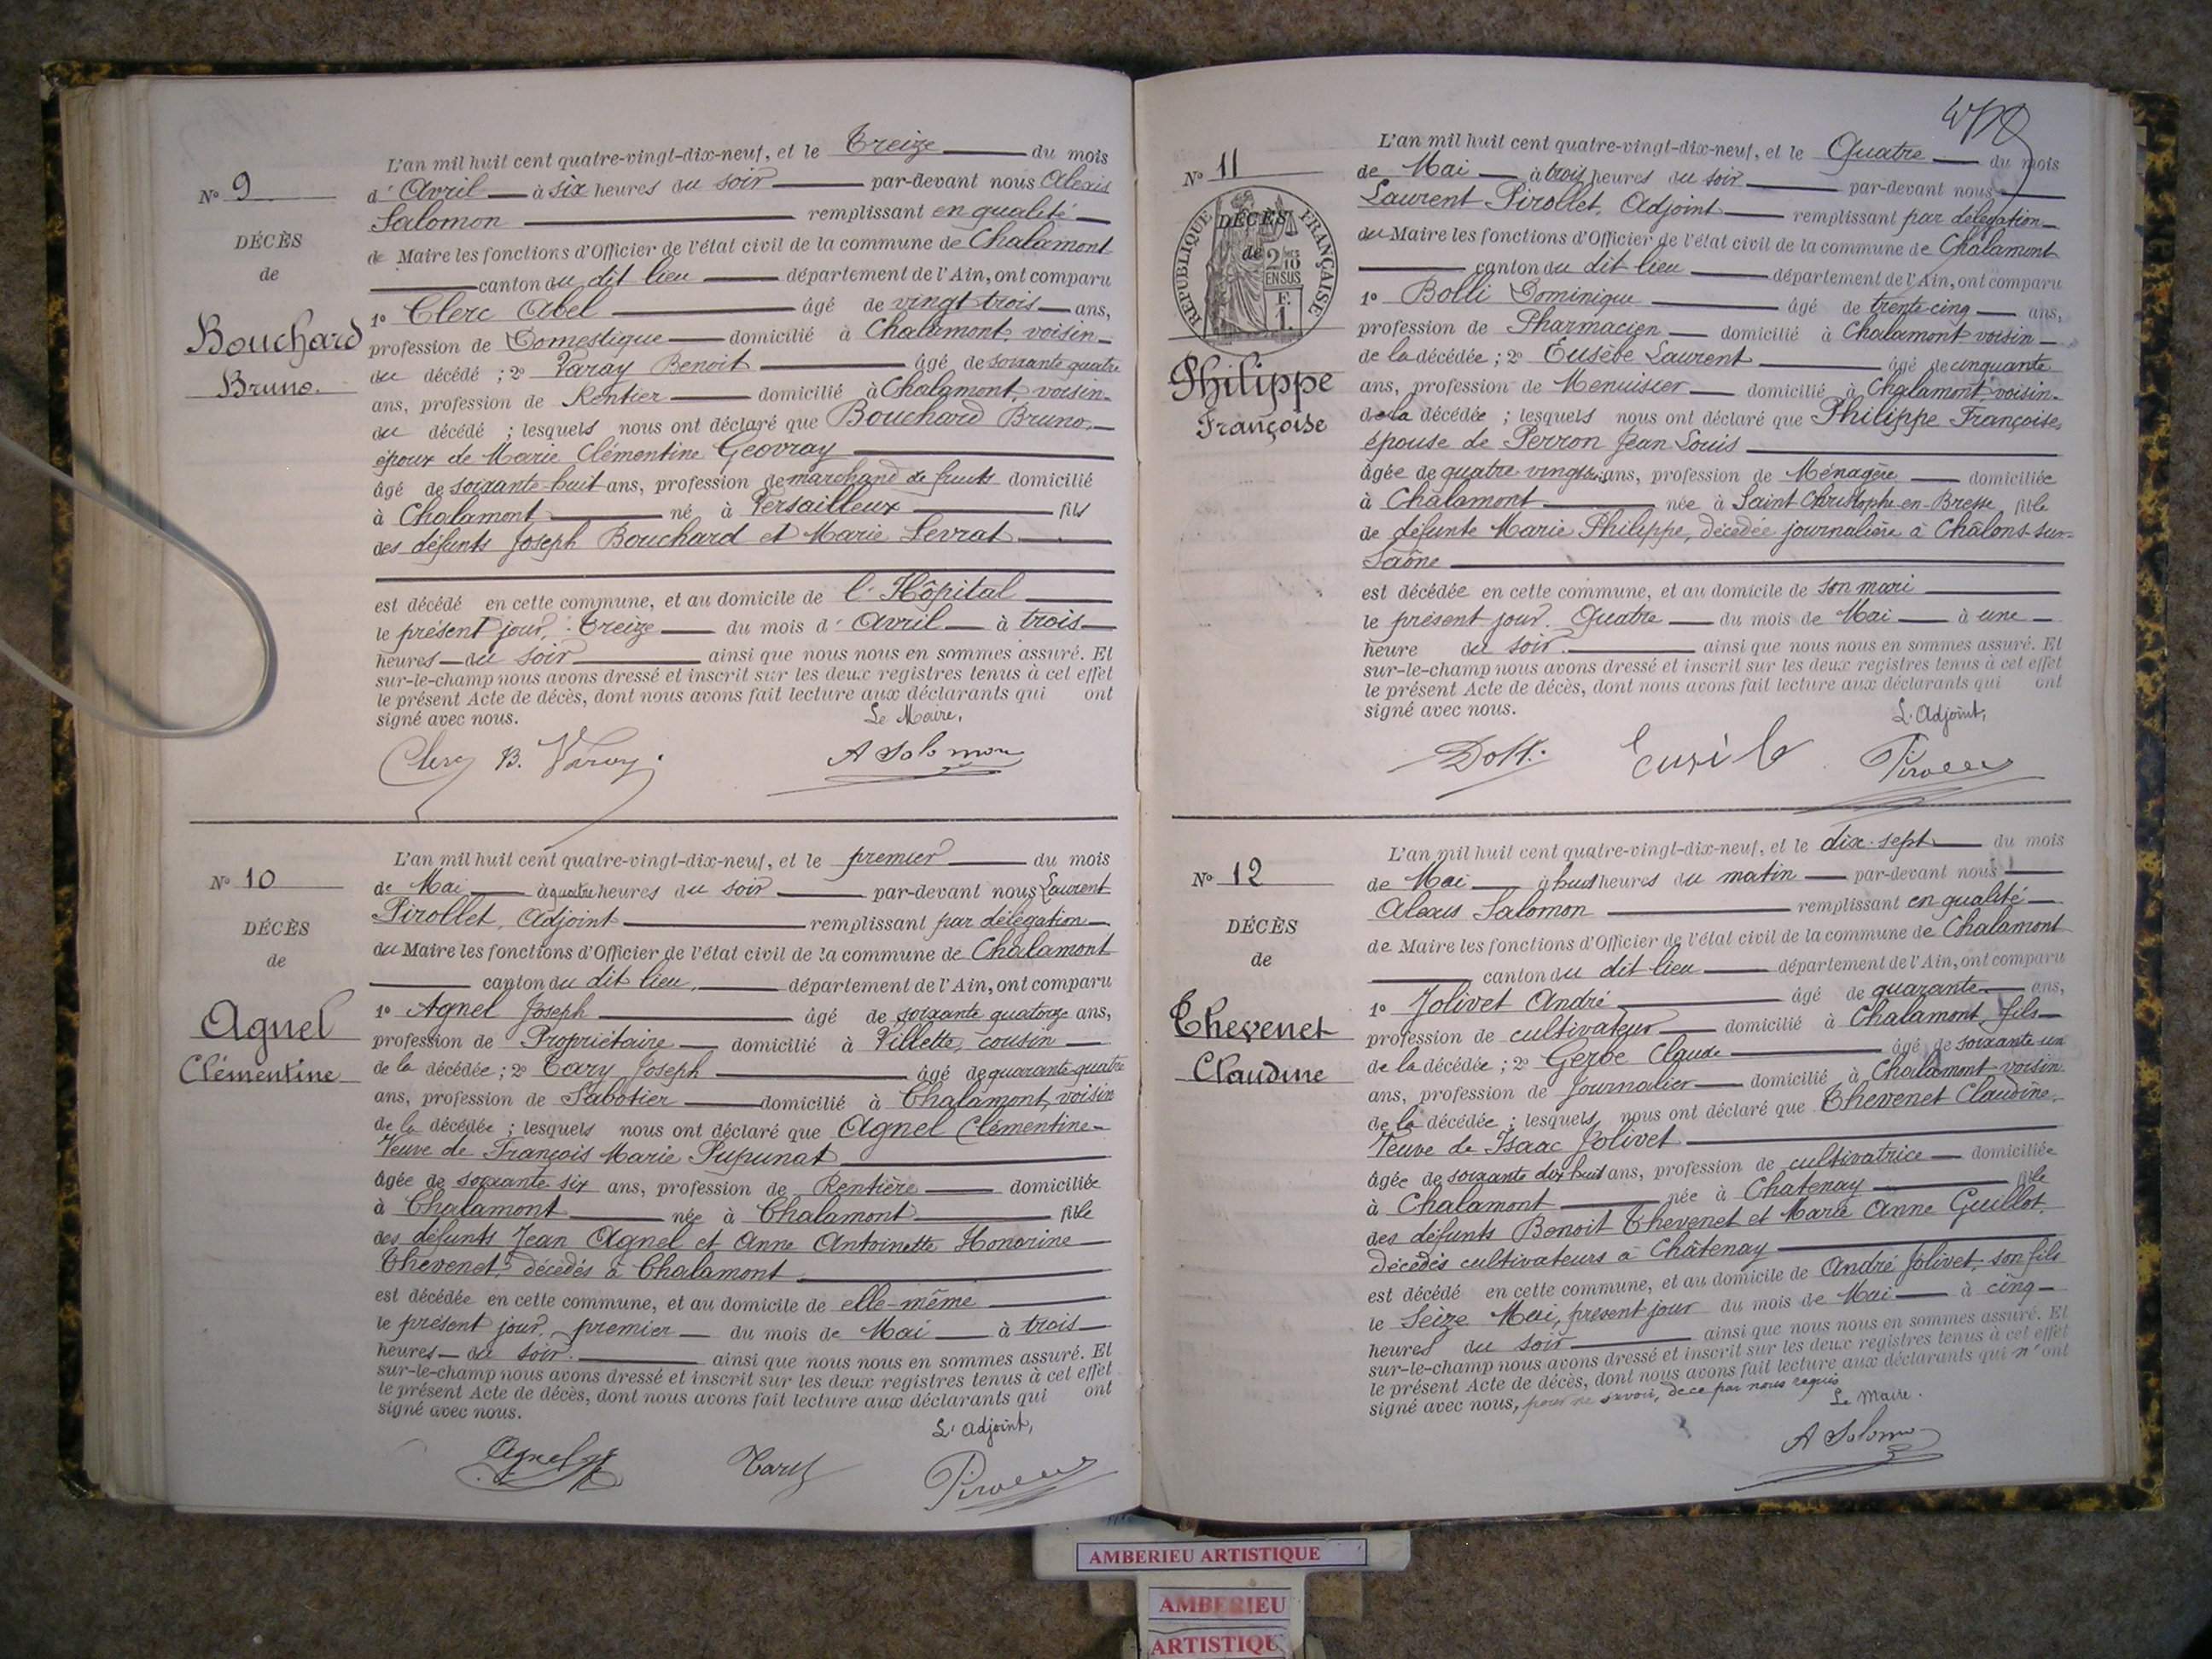 L'an mil huit cent quatre-vingt-dix-neuf, et le Treize du mois
N° 9
d'Avril à six heures du soir par-devant nous Alexis
Salomon remplissant en qualité
DÉCÈS
de
de Maire les fonctions d'Officier de l'état civil de la commune de Chalamont
canton du dit lieu département de l'Ain, ont comparu
Bouchard
Bruno.
1° Clerc Abel âgé de vingt trois ans,
profession de Domestique domicilié à Chalamont, voisin
du décédé ; 2° Varay Benoit âgé de soixante quatre
ans, profession de Rentier domicilié à Chalamont, voisin
du décédé ; lesquels nous ont déclaré que Bouchard Bruno,
époux de Marie Clémentine Geovray
âgé de soixante huit ans, profession de marchand de fruits domicilié
à Chalamont né à Versailleux fils
des défunts Joseph Bouchard et Marie Levrat
est décédé en cette commune, et au domicile de l'Hôpital
le présent jour, Treize du mois d'Avril à trois
heures du soir ainsi que nous nous en sommes assuré. Et
sur-le-champ nous avons dressé et inscrit sur les deux registres tenus à cet effet
le présent Acte de décès, dont nous avons fait lecture aux déclarants qui ont
signé avec nous.
Le Maire,
Clerc B. Varay. A Salomon
L'an mil huit cent quatre-vingt-dix-neuf, et le premier du mois
N° 10
de Mai à quatre heures du soir par-devant nous Laurent
Pirollet, Adjoint remplissant par délégation
DÉCÈS
de
du Maire les fonctions d'Officier de l'état civil de la commune de Chalamont
canton du dit lieu, département de l'Ain, ont comparu
Agnel
Clémentine
1° Agnel Joseph âgé de soixante quatorze ans,
profession de Propriétaire domicilié à Villette, cousin
de la décédée ; 2° Tary Joseph âgé de quarante quatre
ans, profession de Sabotier domicilié à Chalamont, voisin
de la décédée ; lesquels nous ont déclaré que Agnel Clémentine
Veuve de François Marie Pupunat
âgée de soixante six ans, profession de Rentière domiciliée
à Chalamont née à Chalamont fille
des défunts Jean Agnel et Anne Antoinette Honorine
Thevenet, décédés à Chalamont
est décédée en cette commune, et au domicile de elle-même
le présent jour, premier du mois de Mai à trois
heures du soir. ainsi que nous nous en sommes assuré. Et
sur-le-champ nous avons dressé et inscrit sur les deux registres tenus à cet effet
le présent Acte de décès, dont nous avons fait lecture aux déclarants qui ont
signé avec nous.
L'Adjoint,
Agnel Tary Pirollet
L'an mil huit cent quatre-vingt-dix-neuf, et le Quatre du mois
N° 11
de Mai à trois heures du soir par-devant nous
Laurent Pirollet, Adjoint remplissant par délégation
DÉCÈS
de
RÉPUBLIQUE FRANÇAISE
2/10 EN SUS
F.
1.
du Maire les fonctions d'Officier de l'état civil de la commune de Chalamont
canton du dit lieu département de l'Ain, ont comparu
Philippe
Françoise
1° Bolli Dominique âgé de trente-cinq ans,
profession de Pharmacien domicilié à Chalamont voisin
de la décédée ; 2° Eusèbe Laurent âgé de cinquante
ans, profession de Menuisier domicilié à Chalamont, voisin
de la décédée ; lesquels nous ont déclaré que Philippe Françoise,
épouse de Perron Jean Louis
âgée de quatre vingt ans, profession de Ménagère domiciliée
à Chalamont née à Saint Christophe-en-Bresse fille
de défunte Marie Philippe, décédée journalière à Châlons-sur-
Saône
est décédée en cette commune, et au domicile de son mari
le présent jour, Quatre du mois de Mai à une
heure du soir. ainsi que nous nous en sommes assuré. Et
sur-le-champ nous avons dressé et inscrit sur les deux registres tenus à cet effet
le présent Acte de décès, dont nous avons fait lecture aux déclarants qui ont
signé avec nous.
L'Adjoint,
Eusèbe Pirollet
L'an mil huit cent quatre-vingt-dix-neuf, et le dix-sept du mois
N° 12
de Mai à huit heures du matin par-devant nous
Alexis Salomon remplissant en qualité
DÉCÈS
de
de Maire les fonctions d'Officier de l'état civil de la commune de Chalamont
canton du dit lieu département de l'Ain, ont comparu
Thevenet
Claudine
1° Jolivet André âgé de quarante ans,
profession de cultivateur domicilié à Chalamont, fils
de la décédée ; 2° Gerbe Claude âgé de soixante un
ans, profession de Journalier domicilié à Chalamont voisin
de la décédée ; lesquels nous ont déclaré que Thevenet Claudine,
Veuve de Isaac Jolivet
âgée de soixante dix huit ans, profession de cultivatrice domiciliée
à Chalamont née à Chatenay fille
des défunts Benoit Thevenet et Marie Anne Guillot,
décédés cultivateurs à Châtenay
est décédé en cette commune, et au domicile de André Jolivet, son fils
le Seize Mai, présent jour du mois de Mai à cinq
heures du soir ainsi que nous nous en sommes assuré. Et
sur-le-champ nous avons dressé et inscrit sur les deux registres tenus à cet effet
le présent Acte de décès, dont nous avons fait lecture aux déclarants qui n'ont
signé avec nous, pour ne savoir, de ce par nous requis
Le Maire.
A Salomon
AMBERIEU ARTISTIQUE
AMBERIEU
ARTISTIQU